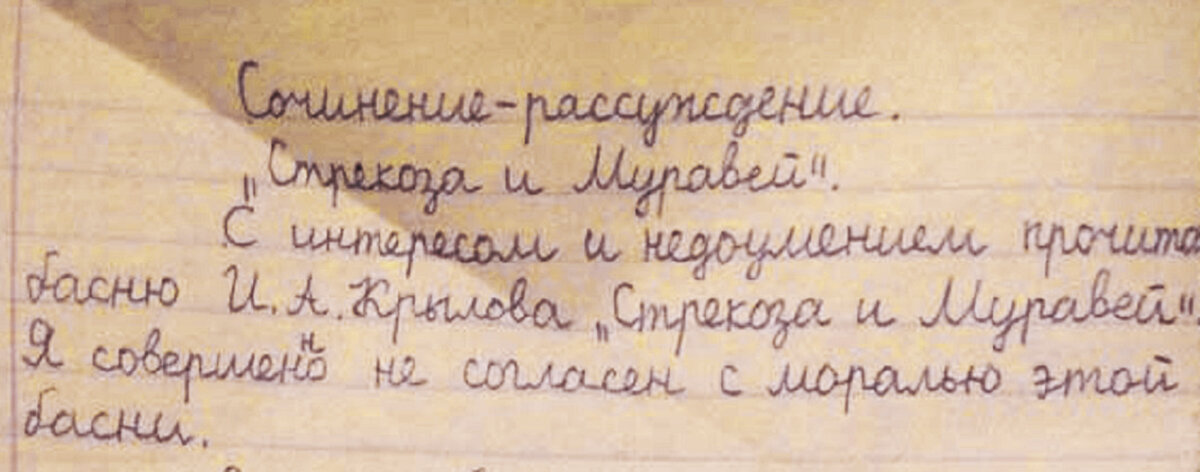 Сочинение-рассуждение.
„Стрекоза и Муравей".
С интересом и недоумением прочита
басню И.А. Крылова „Стрекоза и Муравей"
Я совершенно не согласен с моралью этой
басни.